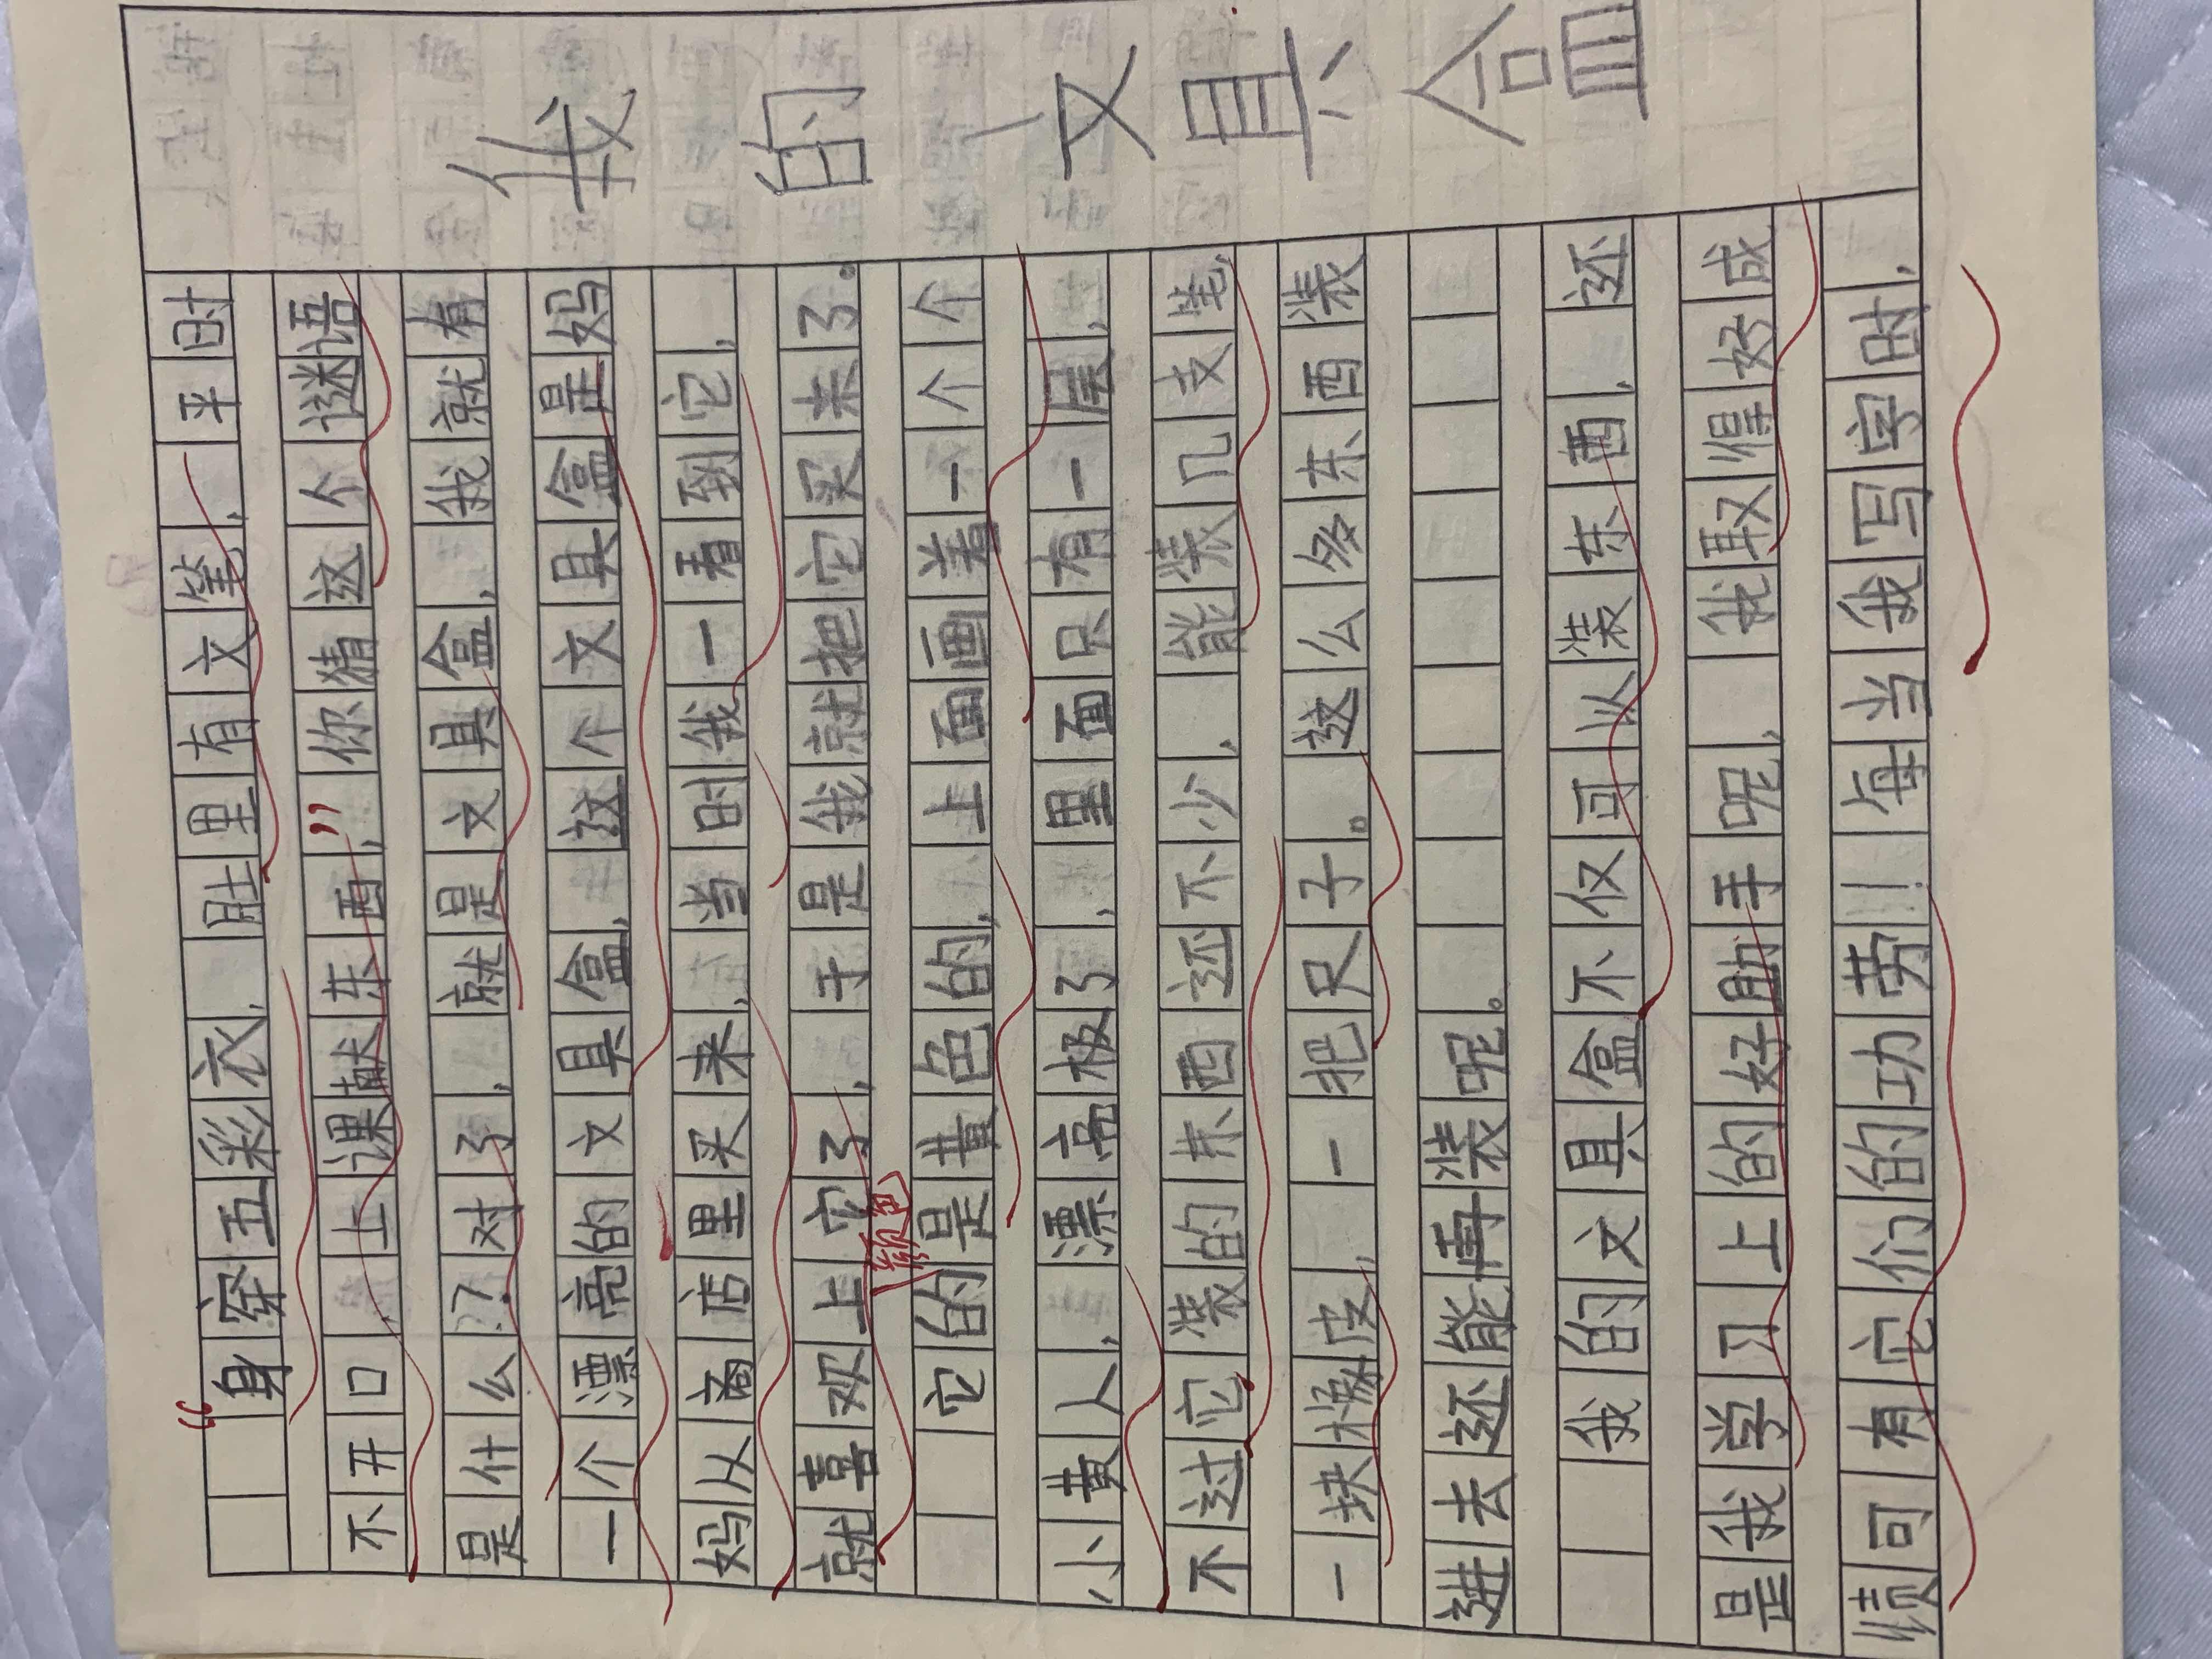 我的文具盒
“身穿五彩衣,肚里有文笔,平时
不开口 上课献东西,”你猜这个谜语
是什么??对了,就是文具盒,我就有
一个漂亮的文具盒,这个文具盒是妈
妈从商店里买来,当时我一看到它,
就喜欢上它了,于是我就把它买来了。
它的颜色是黄色的,上面画着一个个
小黄人,漂亮极了,里面只有一层,
不过它装的东西还不少,能装几支笔,
一块橡皮,一把尺子。这么多东西装
进去还能再装呢。
我的文具盒不仅可以装东西,还
是我学习上的好助手呢,我取得好成
绩可有它们的功劳!!每当我写字时,